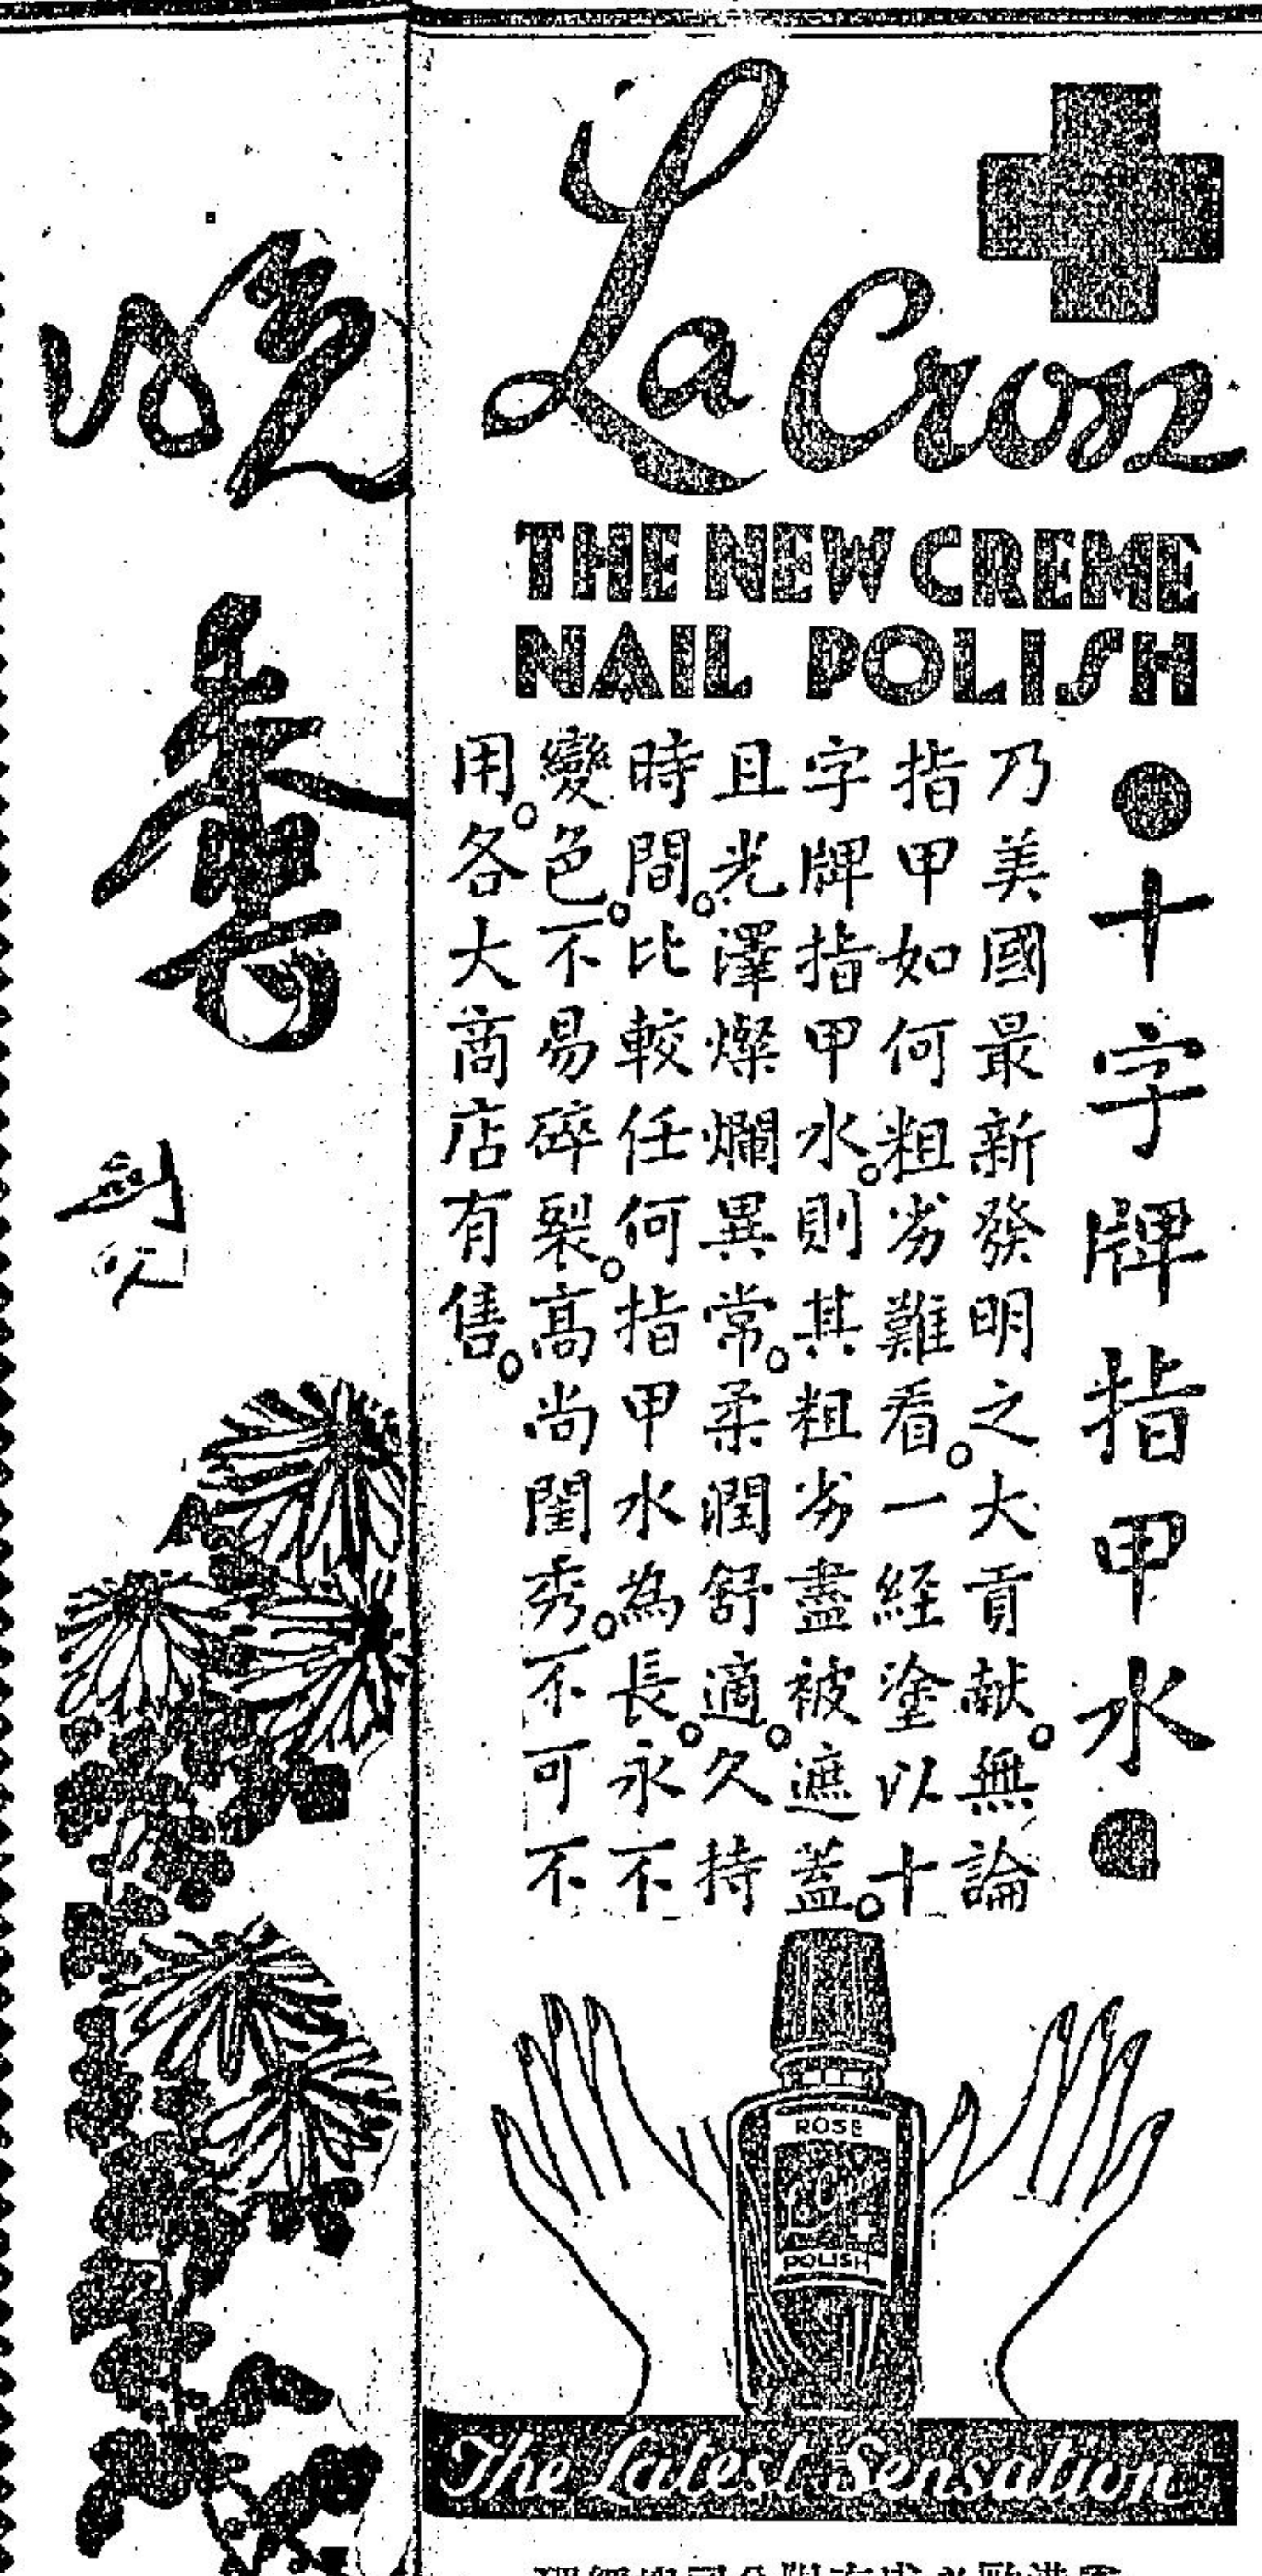 La Cross
THE NEW CREME
NAIL POLISH
●十字牌指甲水●
乃美國最新發明之大貢献。無論
指甲如何粗劣難看。一經塗以十
字牌指甲水。則其粗劣盡被遮蓋。
且光澤燦爛異常。柔潤舒適。久持
時間。比較任何指甲水為長。永不
變色。不易碎裂。高尚閨秀。不可不
用。各大商店有售。
ROSE
POLISH
The Latest Sensation
香